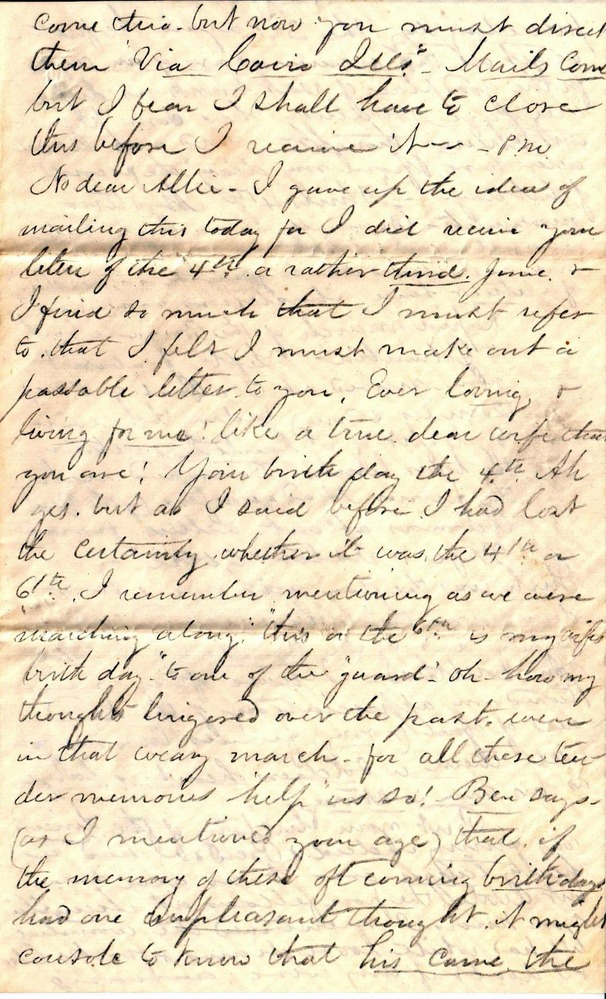 come thro. but now you must direct
them "Via Cairo Ills." - Mails come
but I fear I shall have to close
this before I receive it -- - P.M.
No dear Allie - I gave up the idea of
mailing this today for I did receive your
letter of the 4th. a rather third. June. &
I find so much that I must refer
to. that I felt I must make out a
passable letter to you, Ever loving, &
living for me! like a true dear wife that
you are! Your birth day the 4th. Ah
yes. but as I said before I had lost
the certainty whether it was the 4th or
6th. I remember mentioning as we were
"marching along." "this or the 6th is my wifes
birth day" to one of the "guard". oh how my
thoughts lingered over the past. even
in that weary march - for all these ten
der memories help us so! Ben says -
(as I mentioned your age) that, if
the memory of these oft coming birth days
had one unpleasant thought, it might
console to know that his came the